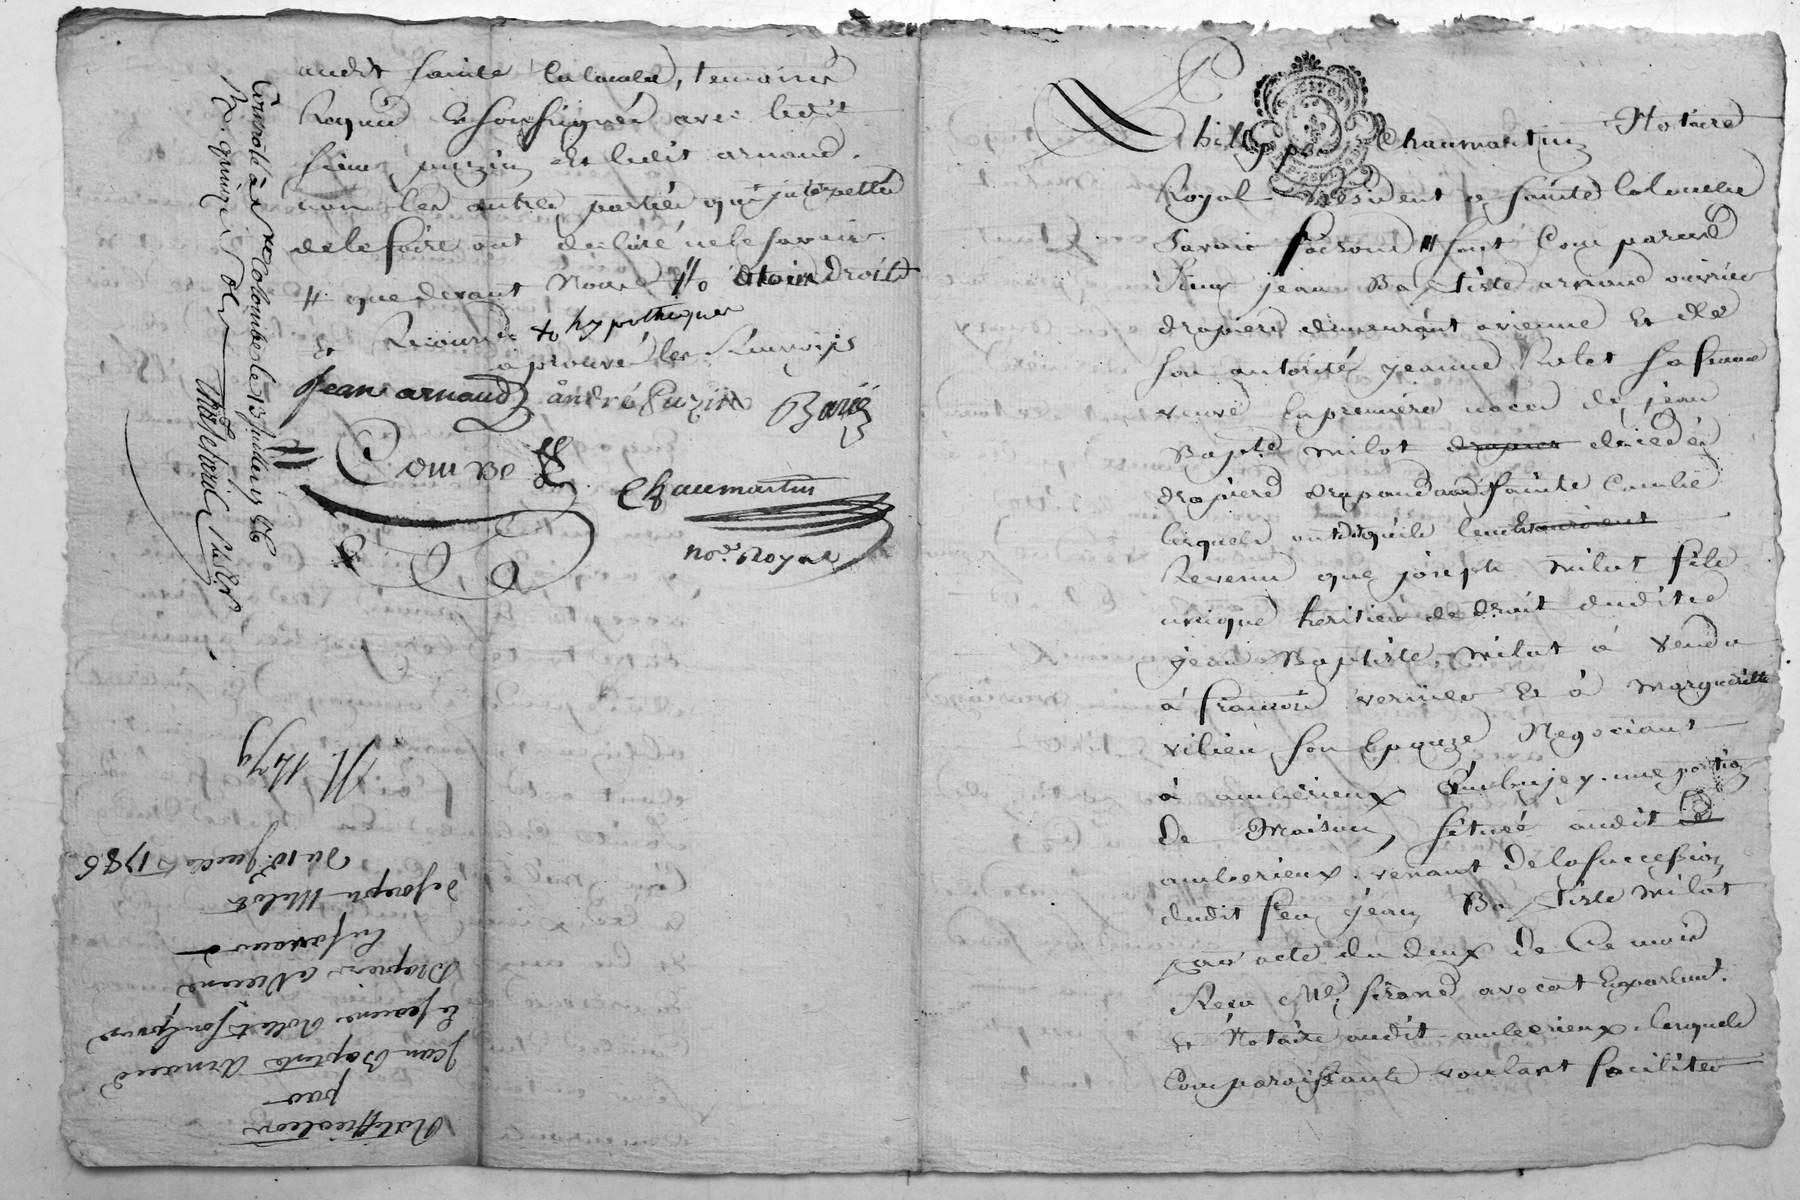 audit Sainte Colombe, temoins
Requis & soussignés avec ledit
sieur puzin et ledit arnaud.
non les autres parties qui interpellés
de le faire ont declaré ne le savoir.
# que devant Nous % droits
et Recours + hypotheques
aprouvé les Renvoijs
Jean arnaud andré Puzin Barg
Combe
Chaumartin
nore. Royal
Controlé à Ste Colombe le 13 juillet 1786
R. quinze sols
N. 1479
Ratiffication
par
Jean Baptiste Arnaud
& Jeanne Rolet son Epouse
Drapier a Vienne
En faveur
de Joseph Milot
Du 10e Juillet 1786
Philippe Chaumartin Notaire
Royal Résident a Sainte Colombe
Savoir faisons # sont Comparus
Sieur jean Baptiste arnaud ouvrier
drapier demeurant a vienne Et de
son autorité jeanne Rolet sa femme
veuve En premières noces de jean
Baptte milot decedé
drapier audit Sainte Combe
lesquels ont dit qu'ils
Revenu que joseph milot fils
unique heritier de droit dudit
jean Baptiste milot à vendu
à francois Et à Margueritte
vilien son Epouze Negociant
à amberieux En bujey une portion
De Maison, située audit
amberieux. venant De la succession
dudit feu jean Baptiste milot
par acte du deux De Ce mois
Recu Me. sirand avocat En parlement.
et Notaire audit amberieux. lesquels
Comparoissants voulant faciliter